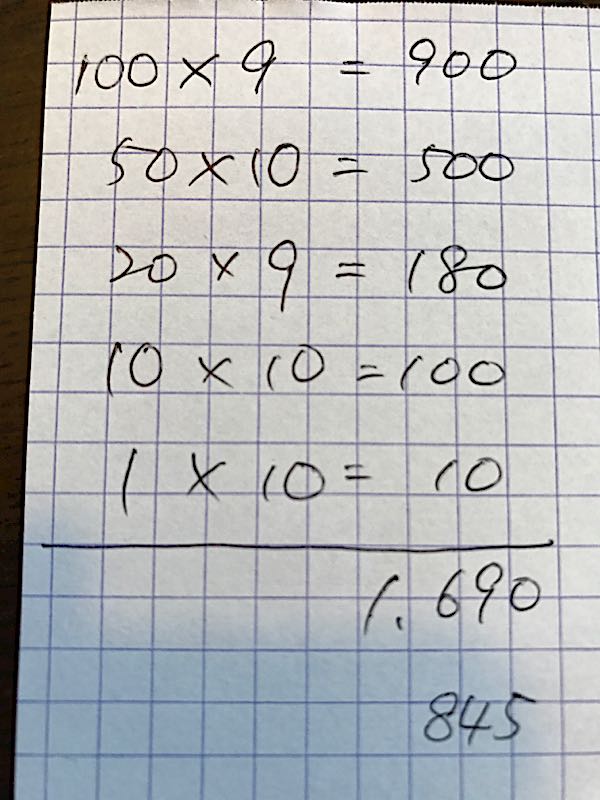 100 × 9 = 900
50 × 10 = 500
20 × 9 = 180
10 × 10 = 100
1 × 10 = 10
1.690
845